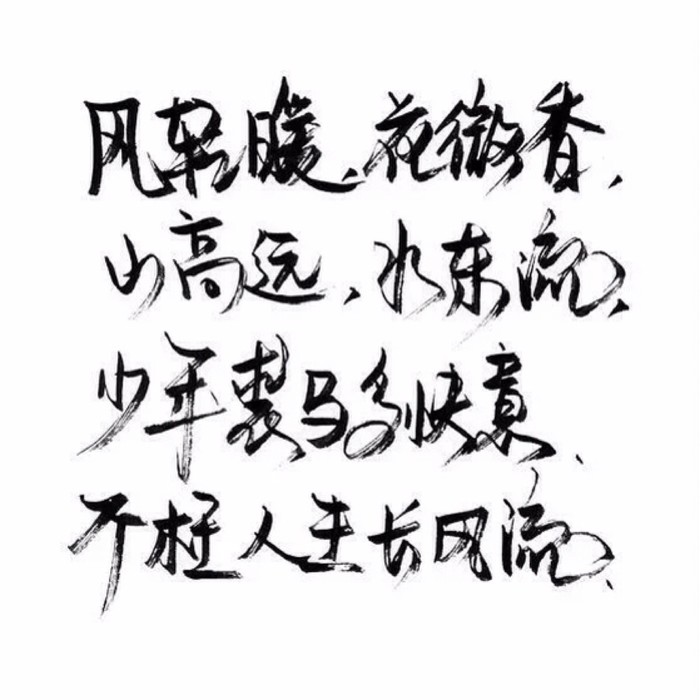 风轻暖，花微香，
山高远，水东流，
少年裘马多快意，
不枉人生长风流，